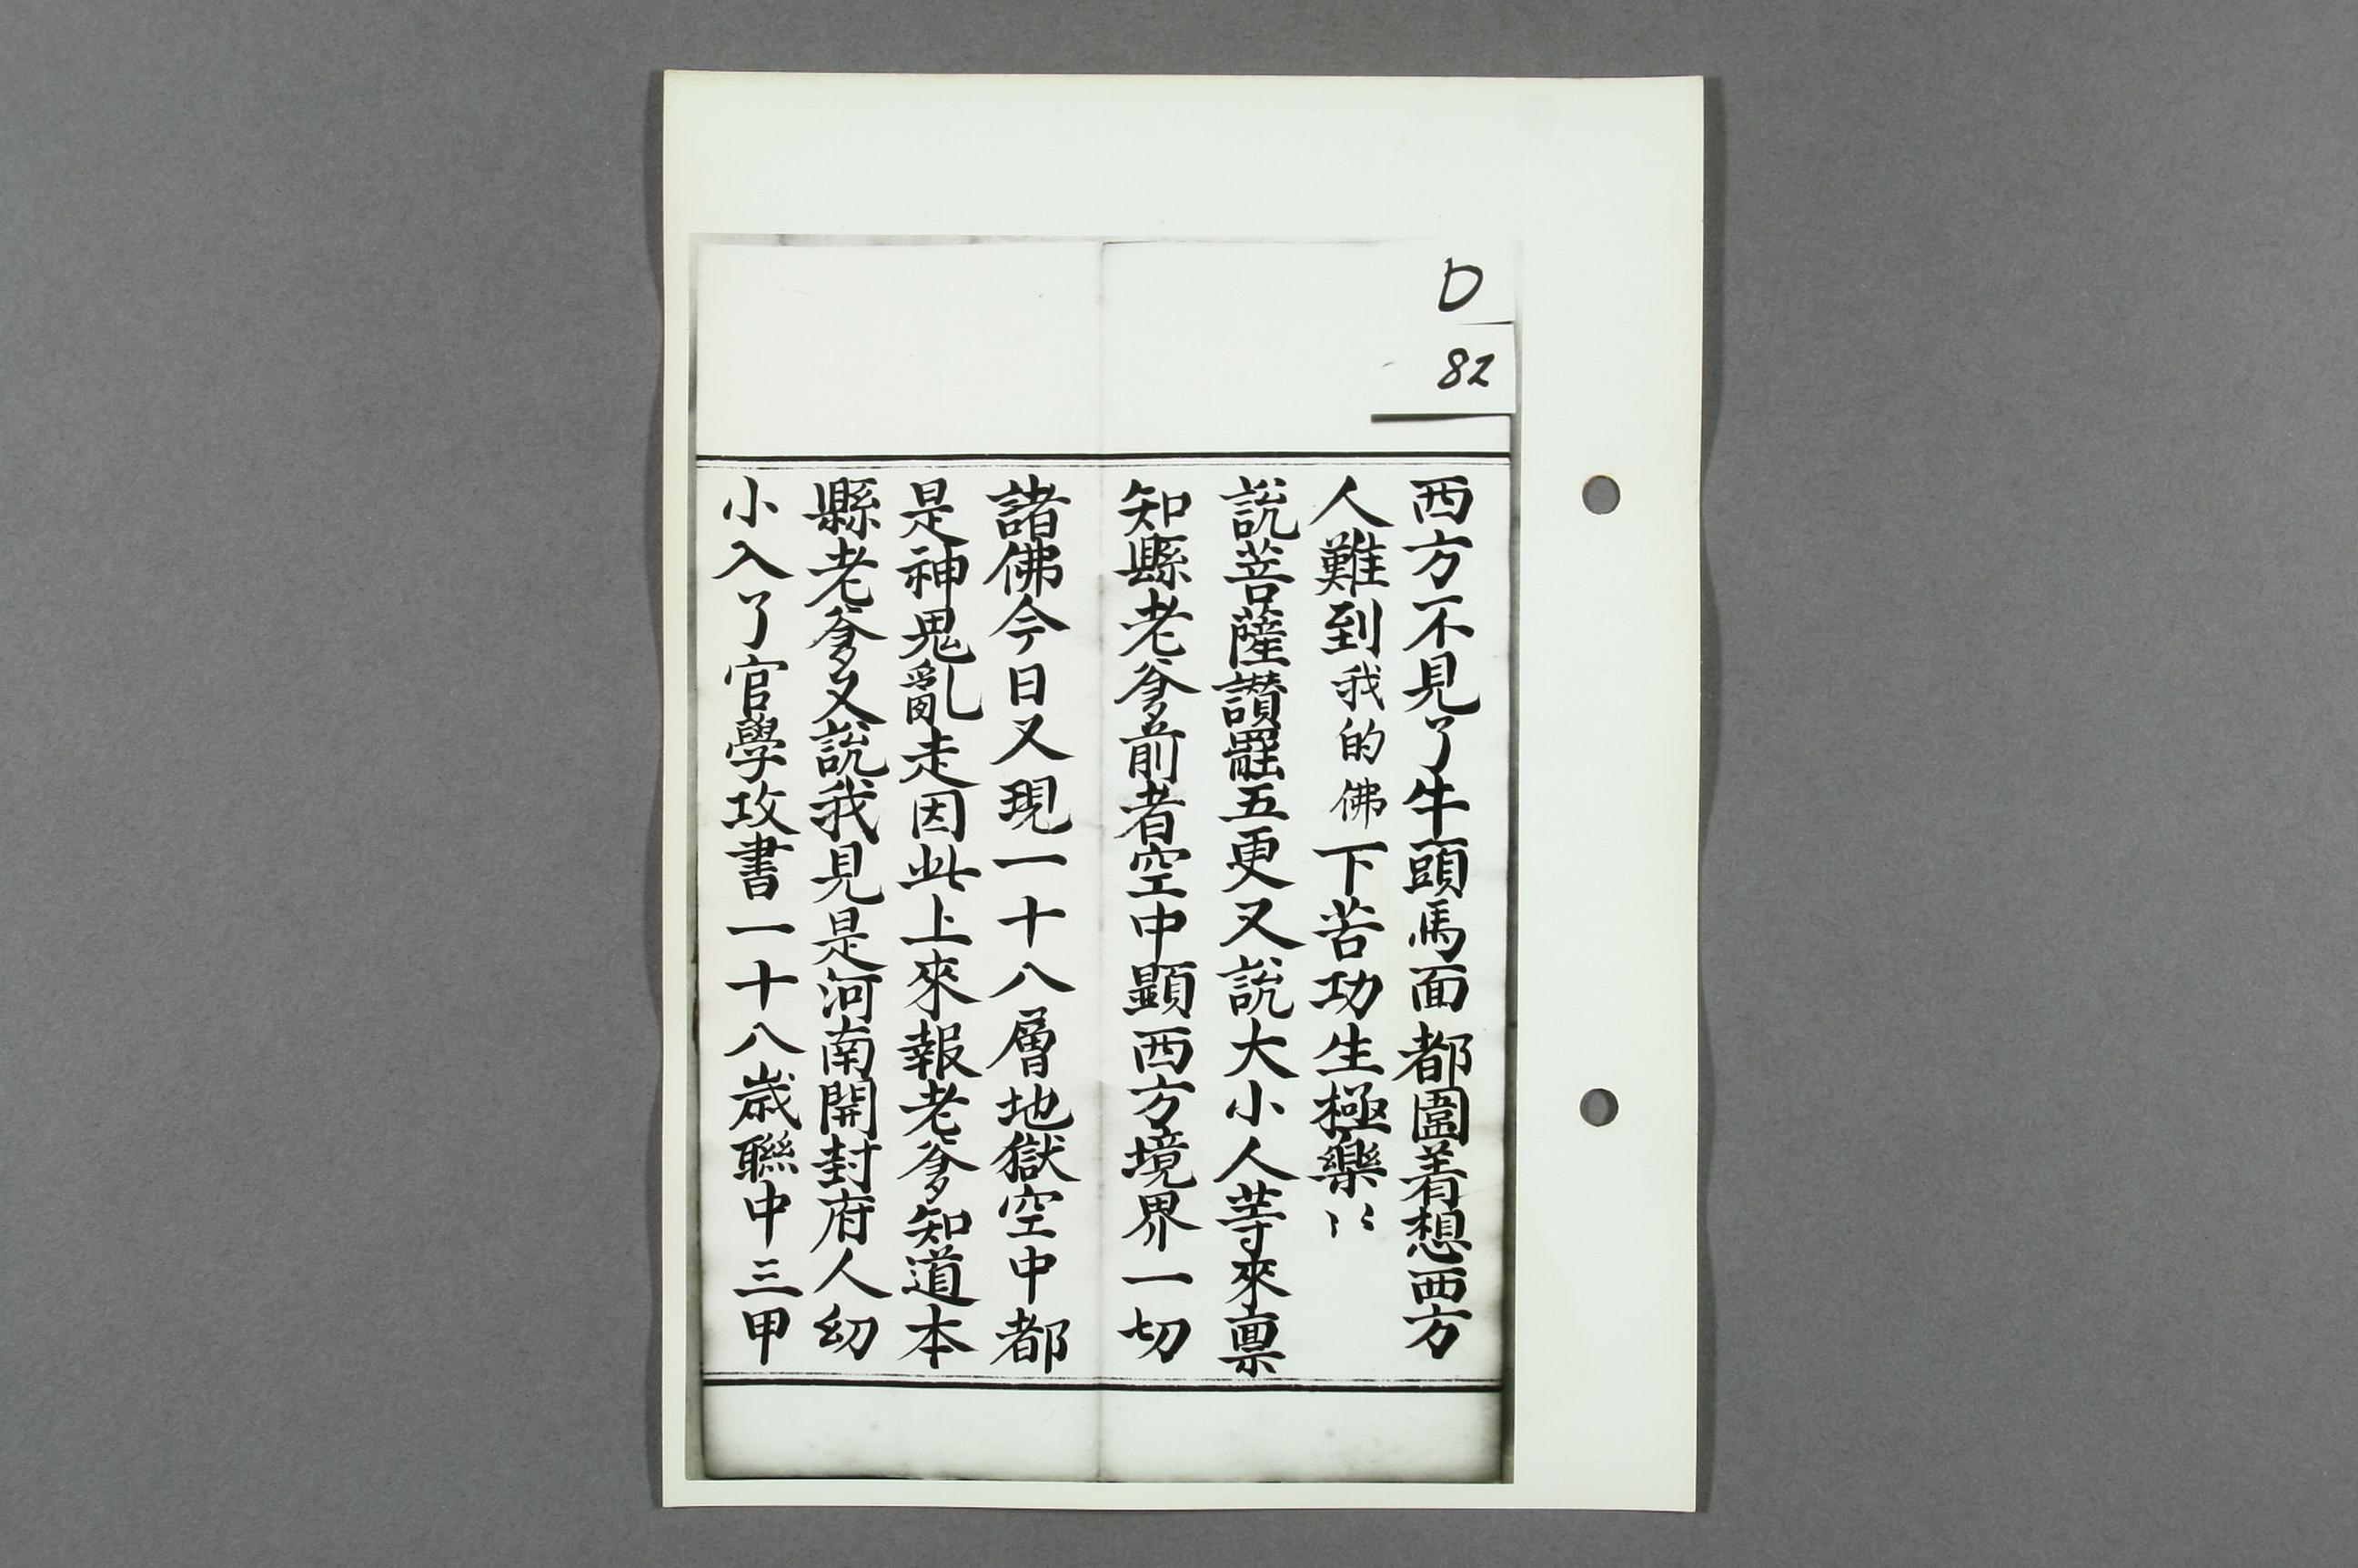 D
82
西方不見了牛頭馬面都圍着想西方
人難到我的佛下苦功生極樂〻
說菩薩讚罷五更又說大小人等來禀
知縣老爹前者空中顯西方境界一切
諸佛今日又現一十八層地獄空中都
是神鬼亂走因此上來報老爹知道本
縣老爹又說我見是河南開封府人幼
小入了官學攻書一十八歲聯中三甲